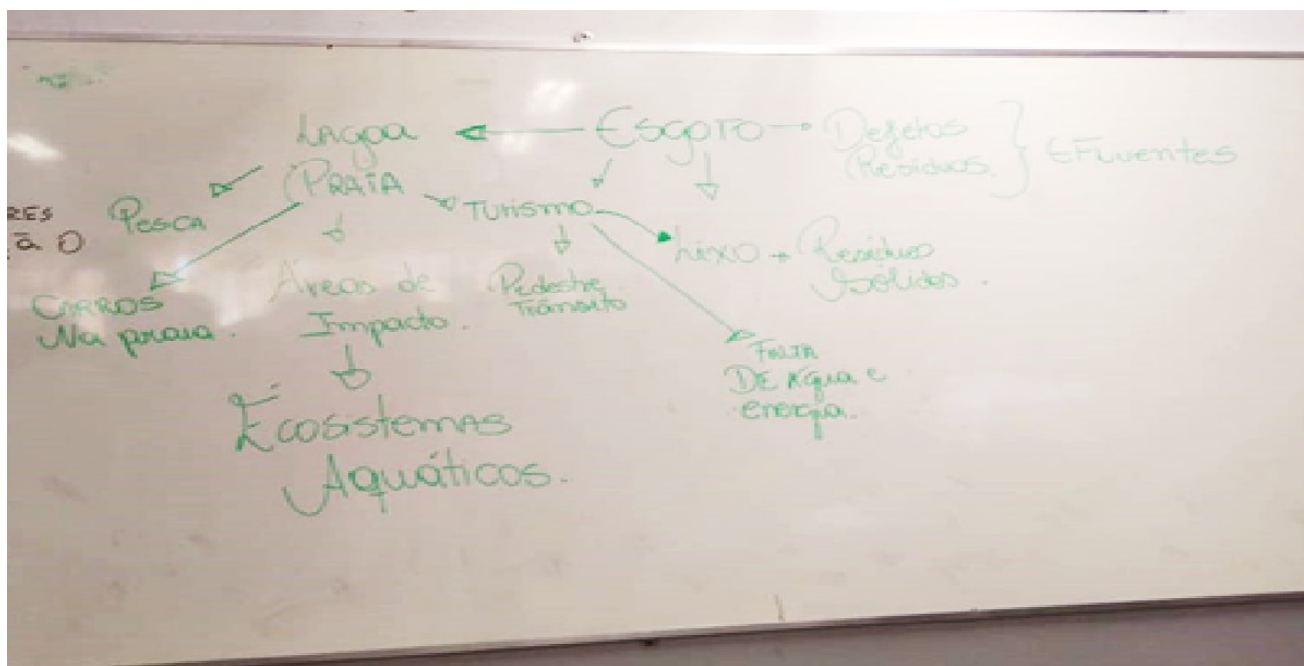 Lagoa ← Esgoto → Dejetos
(Resíduos } Efluentes
(Praia
Pesca
Turismo
RES
ã O
Lixo → Resíduos
Sólidos.
Carros
Na praia.
Áreas de
Impacto.
Pedestre
Trânsito
Falta
De Água e
energia.
Ecosistemas
Aquáticos.